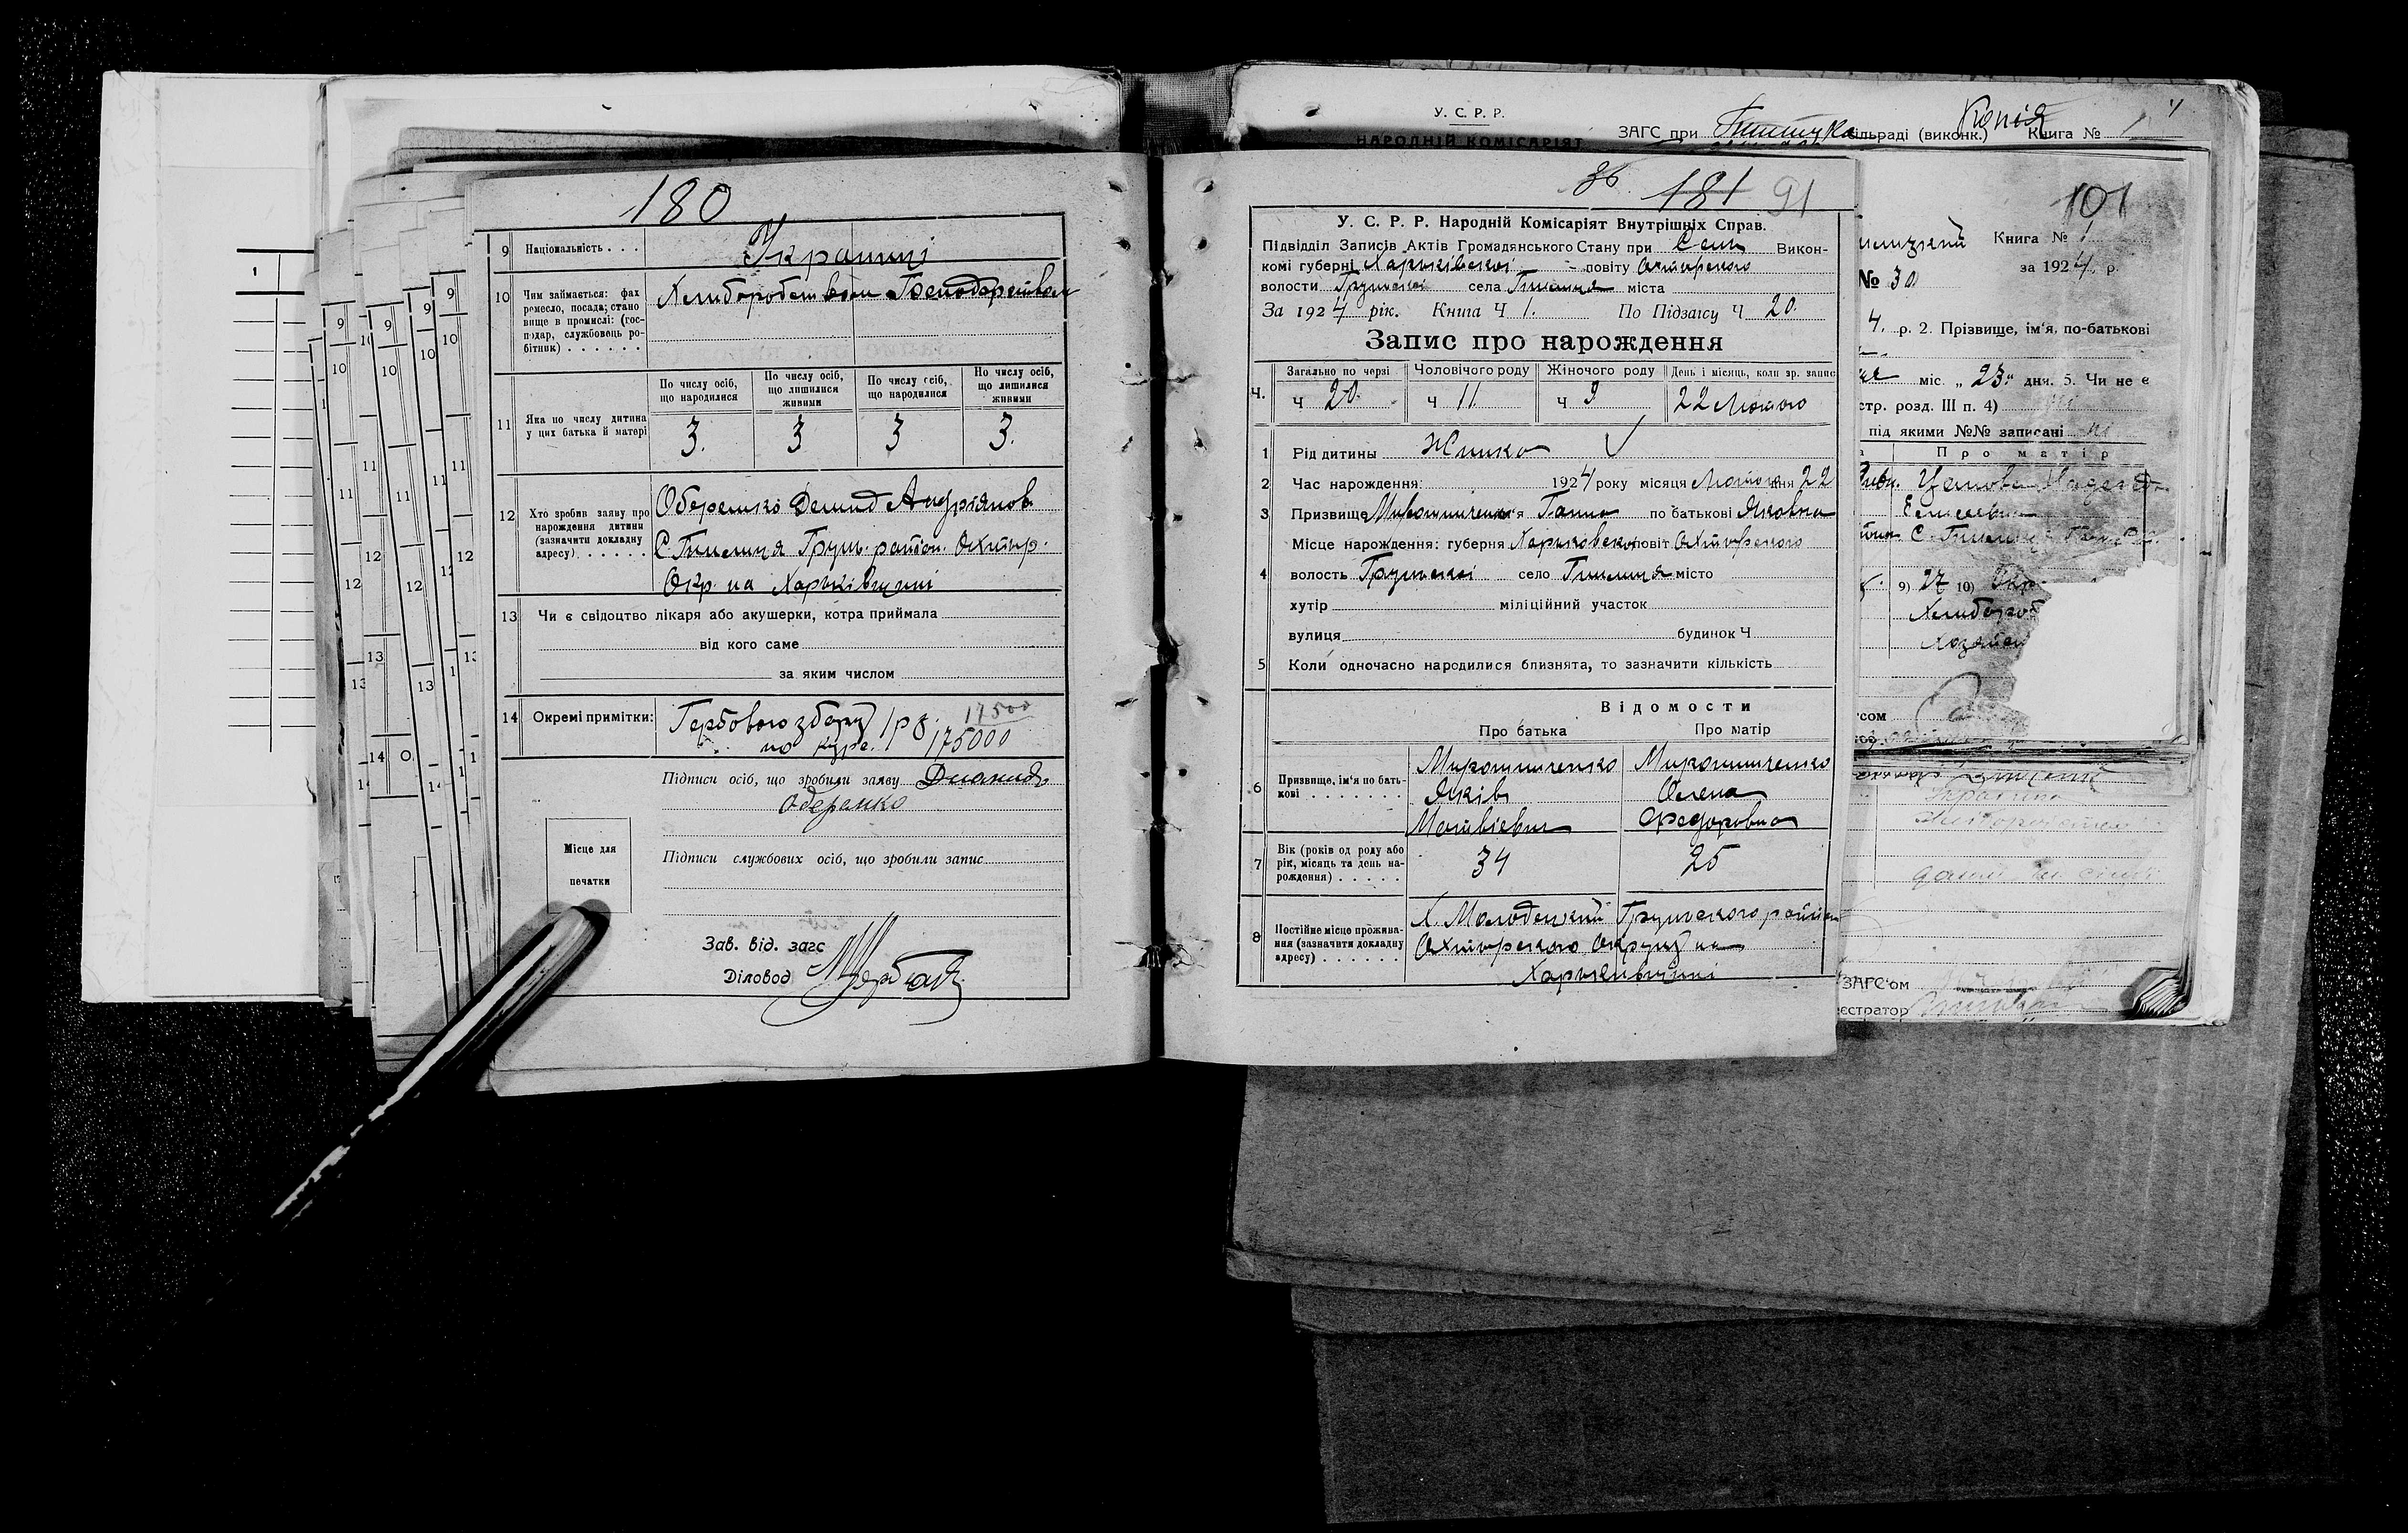 180
9 Національность . . . Украинці
10 Чим займається: фах
ремесло, посада; стано
вище в промислі: (гос-
подар, службовець ро-
бітник) . . . . . .
Хлиборобством Господарством
11 Яка по числу дитина
у цих батька й матері
По числу осіб,
що народилися
По числу осіб,
що лишилися
живими
По числу осіб,
що народилися
По числу осіб,
що лишилися
живими
3. 3 3 3.
12 Хто зробив заяву про
нарождення дитини
(зазначити докладну
адресу) . . . . .
Андріянов
район. Охтир.
Окр на Харьківщині
13 Чи є свідоцтво лікаря або акушерки, котра приймала
від кого саме
за яким числом
14 Окремі примітки:
Гербового збору 1 р 17500
по курс. 175000
Підписи осіб, що зробили заяву
Одеремко
Підписи службових осіб, що зробили запис
Місце для
печатки
Зав. від. загс
Діловод
У. С. Р. Р.
НАРОДНІЙ КОМІСАРІЯТ
ЗАГС при сільраді (виконк.) Копія Книга № 1
36. 181 91
У. С. Р. Р. Народній Комісаріят Внутрішніх Справ.
Підвідділ Записів Актів Громадянського Стану при Сель Викон-
комі губерні Харьківської повіту Охтирського
волости Грунської села міста
За 1924 рік. Книга Ч 1. По Підзагсу Ч 20.
Запис про нарождення
Ч. Загально по черзі Чоловічого роду Жіночого роду День і місяць, коли зр. запис
Ч 20. Ч 11 Ч 9 22 Лютого
1 Рід дитины Жинка
2 Час нарождення: 1924 року місяця Лютого дня 22
3 Призвище Мирошниченко ім'я Ганна по батькові Яковна
4 Місце нарождення: губерня Харьковської повіт Охтирського
волость Грунської село місто
хутір міліційний участок
вулиця будинок Ч
5 Коли одночасно народилися близнята, то зазначити кількість
Відомости
Про батька Про матір
6 Призвище, ім'я по бать-
кові . . . . . . .
Мирошниченко
Яків
Матвіевич
Мирошниченко
Олена
Федоровна
7 Вік (років од роду або
рік, місяць та день на-
рождення) . . . . .
34 25
8 Постійне місце прожива-
ння (зазначити докладну
адресу) . . . . . .
Х. Молодецький Грунського район
Охтирского Округу на
Харьківщині
101
Книга № 1
за 1924 р.
№ 30
4. р. 2. Прізвище, ім'я, по-батькові
міс. „ 23 " дня. 5. Чи не є
стр. розд. III п. 4)
під якими №№ записані
Про матір
9) 27 10)
Хлибороб
сом
ЗАГС'ом
еєстратор